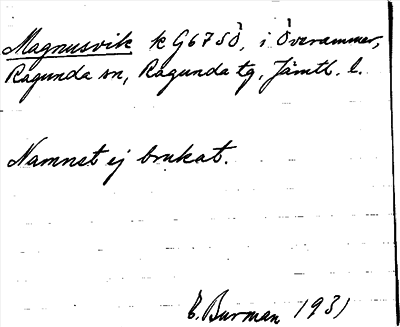 Magnusvik k G67SÖ, i Överammer,
Ragunda sn, Ragunda tg, Jämtl. l.
Namnet ej brukat.
E. Burman 1931